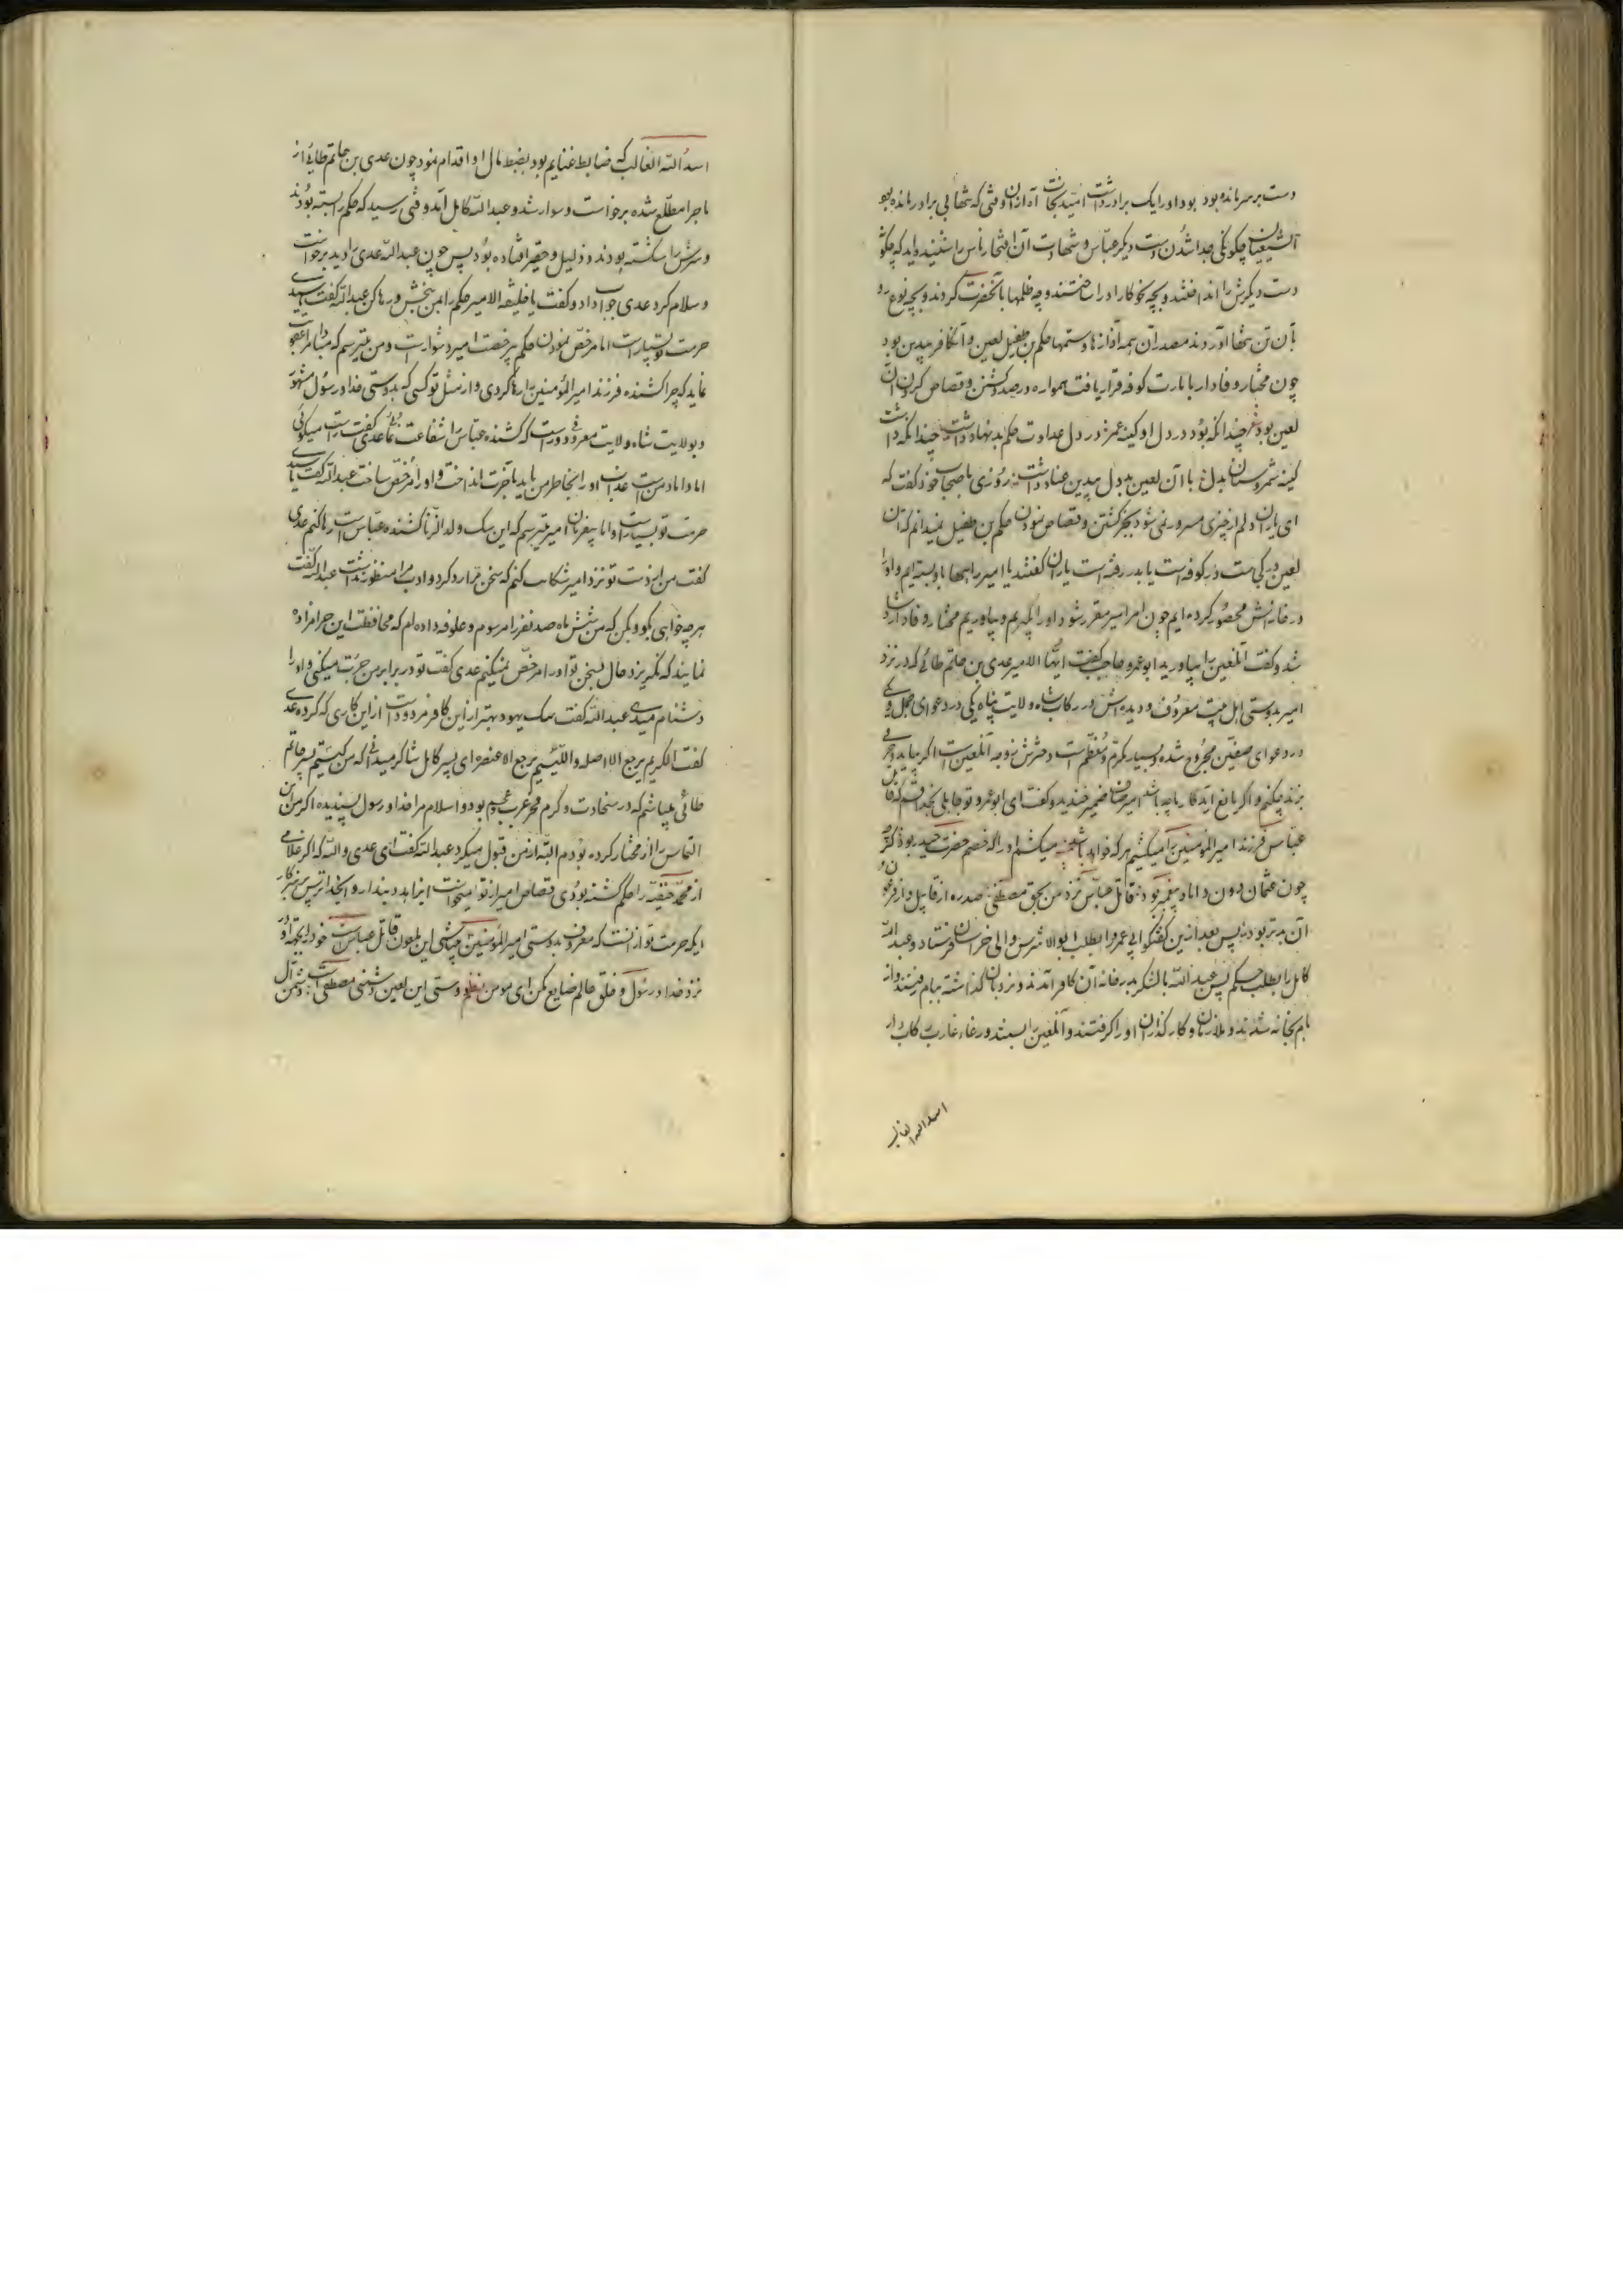 دست بر سر مانده بود بود او را یک برادر داشت امید نجات آه ازان وقتی که تنها بی برادر مانده بود
الشیعیان چکونکی جدا شدن دست دیکر عباس و شهادت آن افتخار ناس را شنیده اید که چکونه
دست دیکرش را انداختند و بچه نحو کار او را ساختند و چه ظلمها بانحضرت کردند و بچه نوع رو
بآن تن تنها آوردند مصدر آن همه آزارها و ستمها حکم بن طفیل لعین و آن کافر بیدین بود
چون مختار وفادار بامارت کوفه قرار یافت همواره در صدد کشتن و قصاص کردن آن
لعین بود چندانکه بود در دل او کینه عمر در دل عداوت حکم بد نهاد داشت چندانکه داشت
کینه شمر و سنان بدل با آن لعین بد دل بیدین عناد داشت روزی باصحاب خود کفت که
ای یاران دلم از چیزی مسرور نمی شود بجز کشتن و قصاص نمودن حکم بن طفیل نمیدانم که آن
لعین در کجاست در کوفه است یا بدر رفته است یاران کفتند یا امیر راهها باو بسته ایم و او را
در خانه اش محصور کرده ایم چون امر امیر مقرر شود او را بکیریم و بیاوریم مختار وفادار شاد
شد و کفت آنلعین را بیاورید ابو عمرو حاجب کفت ایها الامیر عدی بن حاتم طائی که در نزد
امیر بدوستی اهل بیت معروف و دیده اش در رکاب شاه ولایت پناه یکی در دعوای جمل و یکی
در دعوای صفین مجروح شده و بسیار مکرم و معظم است دخترش زوجه آنلعین است اکر بیاید و حرفی
بزند چکنم و اکر مانع آید کار ما چه باشد امیر صافی ضمیر خندید و کفت ای ابو عمرو تو جاهلی بخدا قسم که قاتل
عباس فرزند امیر المؤمنین را میکشم هر که خواهد باشد میکشم او را که خصم حضرت حیدر بود کر
چون عثمان دون داماد پیغمبر بود قاتل عباس نزد من بحق مصطفی صد ره از قابیل و از فرعون
آن بدتر بود پس بعد ازین کفتکو ابی عمرو را بطلب ابو الاشرس والی خراسان فرستاد و عبد الله
کامل را بطلب حکم پس عبد الله با لشکر بدر خانه آن کافر آمدند و نردبان کذاشته ببام رفتند و از
بام بخانه شدند و ملازمان و کارکذاران او را کرفتند و آنلعین را بستند و رغاء غارب کاب از
اسد الله الغالب
اسد الله الغالب که ضابط غنایم بود بضبط مال او اقدام نمود چون عدی بن حاتم طائی از
ماجرا مطلع شده برخواست و سوار شد و عبد الله کامل آمد وقتی رسید که حکم را بسته بودند
و سرش را شکسته بودند و ذلیل و حقیر افتاده بود پس چون عبد الله عدی را دید برخواست
و سلام کرد عدی جواب داد و کفت یا خلیفة الامیر حکم را بمن ببخش و رها کن عبد الله کفت یا سیدی
حرمت تو بسیار است اما مرخص نمودن حکم بی رخصت امیر دشوار است و من میترسم که مبادا مرا عتاب
نماید که چرا کشنده فرزند امیر المؤمنین را رها کردی و از مثل تو کسی که بدوستی خدا و رسول مشهور
و بولایت شاه ولایت معروفی دور است که کشنده عباس را شفاعت نمائی عدی کفت راست میکوئی
اما داماد من است عذاب او را بخاطر من باید بآخرت انداخت و او را مرخص ساخت عبد الله کفت یا سیدی
حرمت تو بسیار است و اما بیفرمان امیر میترسم که این سک ولد الزنا کشنده عباس است رها کنم عدی
کفت من از دست تو نزد امیر شکایت کنم که سخن مرا رد کرد و ادب مرا منظور نداشت عبد الله کفت
هر چه خواهی بکو و بکن که من شش ماه صد نفر را مرسوم و علوفه داده ام که محافظت این حرامزاده
نمایند که نکریزد حال بسخن تو او را مرخص نمیکنم عدی کفت تو در برابر من جرئت میکنی و او را
دشنام میدهی عبد الله کفت سک یهود بهتر ازین کافر مردود است از این کاری که کرده عدی
کفت الکریم یرجع الا اصله و اللئیم یرجع الا عنصره ای پسر کامل شاکر میدانی که من کیستم پسر حاتم
طائی میباشم که در سخاوت و کرم فخر عرب و عجم بود و اسلام مرا خدا و رسول پسندیده اکر من این
التماس را از مختار کرده بودم البته از من قبول میکرد عبد الله کفت ای عدی والله که اکر غلامی
از محمد حنفیه را حکم کشته بودی قصاص امیر از تو میخواست ای زاهد دیندار و ای خدا ترس پرهیزکار
ایکه حرمت تو از آنست که معروف بدوستی امیر المؤمنین میباشی این ملعون قاتل عباس است خود را بجهة او
نزد خدا و رسول و خلق عالم ضایع مکن ای مومن نظم دوستی این لعین دشمنی مصطفی است دشمن آل